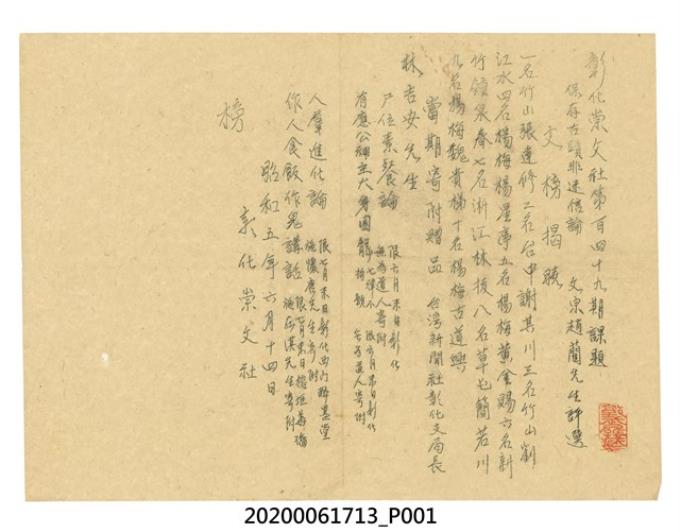 彰化崇文社第百四十九期課題
保存古蹟非迷信論 文宗趙蘭先生評選
文榜揭曉
一名竹山張達修二名台中謝其川三名竹山劉
江水四名楊梅楊星亭五名楊梅黃金賜六名新
竹鎖泉春七名浙江林拔八名草屯簡若川
九名楊梅魏貴梯十名楊梅古道興
當期寄附贈品 台灣新聞社彰化支局長
林吉安先生
尸位素餐論 限六月末日彰化
無為道人寄附
有應公 七律不
限六月末日彰化
人羣進化論 限七月末日彰化西門
施 先生寄附
作人食飯作鬼講話 限七月末日
先生寄附
昭和五年六月十四日
彰化崇文社
榜
20200061713_P001